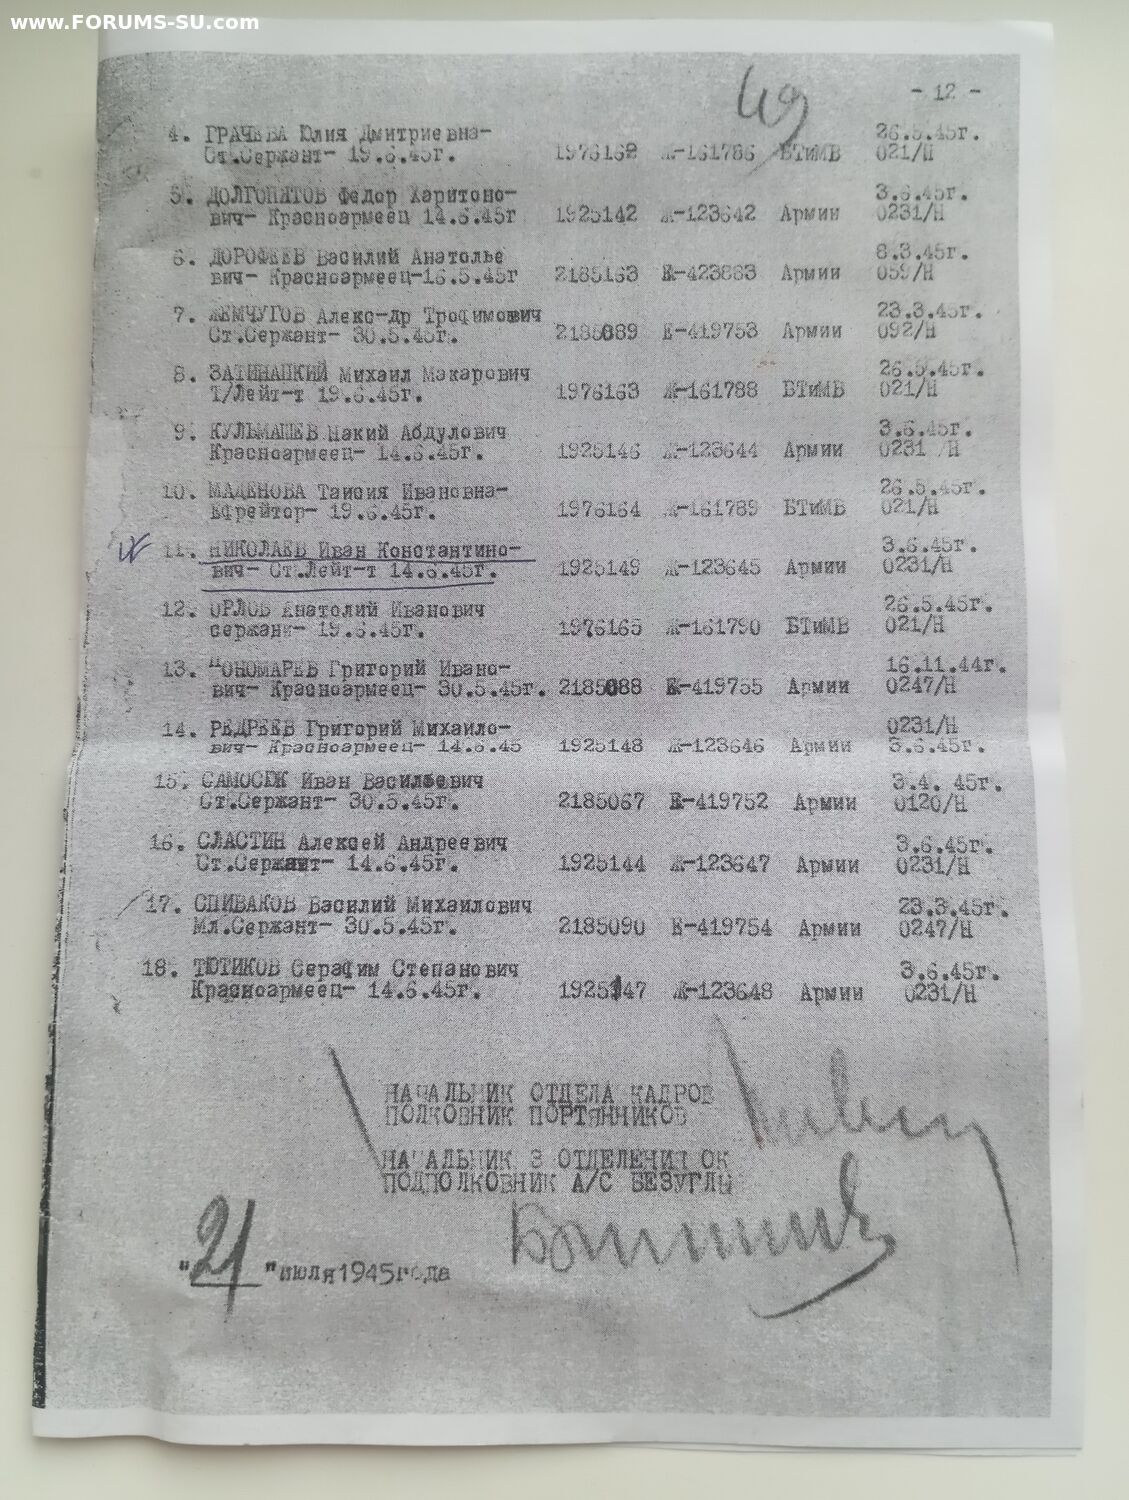 www.FORUMS-SU.com
49
- 12 -
4. ГРАЧЕВА Юлия Дмитриевна- 26.5.45г.
Ст.Сержант- 19.6.45г. 1976162 Ж-161786 БТиМВ 021/Н
5. ДОЛГОПЯТОВ Федор Харитоно- 3.6.45г.
вич- Красноармеец 14.6.45г 1925142 Ж-123642 Армии 0231/Н
6. ДОРОФЕЕВ Василий Анатолье 8.3.45г.
вич- Красноармеец-16.5.45г 2185163 Е-423883 Армии 059/Н
7. ЖЕМЧУГОВ Алекс-др Трофимович 23.3.45г.
Ст.Сержант- 30.5.45г. 2185089 Е-419753 Армии 092/Н
8. ЗАТИНАЦКИЙ Михаил Макарович 26.5.45г.
Т/Лейт-т 19.6.45г. 1976163 Ж-161788 БТиМВ 021/Н
9. КУЛЬМАШЕВ Накий Абдулович 3.6.45г.
Красноармеец- 14.6.45г. 1925146 Ж-123644 Армии 0231 /Н
10. МАДЕНОВА Таисия Ивановна- 26.5.45г.
Ефрейтор- 19.6.45г. 1976164 Ж-161789 БТиМВ 021/Н
11. НИКОЛАЕВ Иван Константино- 3.6.45г.
вич- Ст.Лейт-т 14.6.45г. 1925149 Ж-123645 Армии 0231/Н
12. ОРЛОВ Анатолий Иванович 26.5.45г.
сержант- 19.6.45г. 1976165 Ж-161790 БТиМВ 021/Н
13. ПОНОМАРЕВ Григорий Ивано- 16.11.44г.
вич- Красноармеец- 30.5.45г. 2185088 Е-419755 Армии 0247/Н
14. РЕДРЕЕВ Григорий Михаило- 0231/Н
вич- Красноармеец- 14.6.45 1925148 Ж-123646 Армии 3.6.45г.
15. САМОСЕК Иван Васильевич 3.4. 45г.
Ст.Сержант- 30.5.45г. 2185067 Е-419752 Армии 0120/Н
16. СЛАСТИН Алексей Андреевич 3.6.45г.
Ст.Сержант- 14.6.45г. 1925144 Ж-123647 Армии 0231/Н
17. СПИВАКОВ Василий Михаилович 23.3.45г.
Мл.Сержант- 30.5.45г. 2185090 Е-419754 Армии 0247/Н
18. ТЮТИКОВ Серафим Степанович 3.6.45г.
Красноармеец- 14.6.45г. 1925147 Ж-123648 Армии 0231/Н
НАЧАЛЬНИК ОТДЕЛА КАДРОВ
ПОЛКОВНИК ПОРТЯННИКОВ
НАЧАЛЬНИК 3 ОТДЕЛЕНИЯ ОК
ПОДПОЛКОВНИК А/С БЕЗУГЛЫ
"21" июля1945года